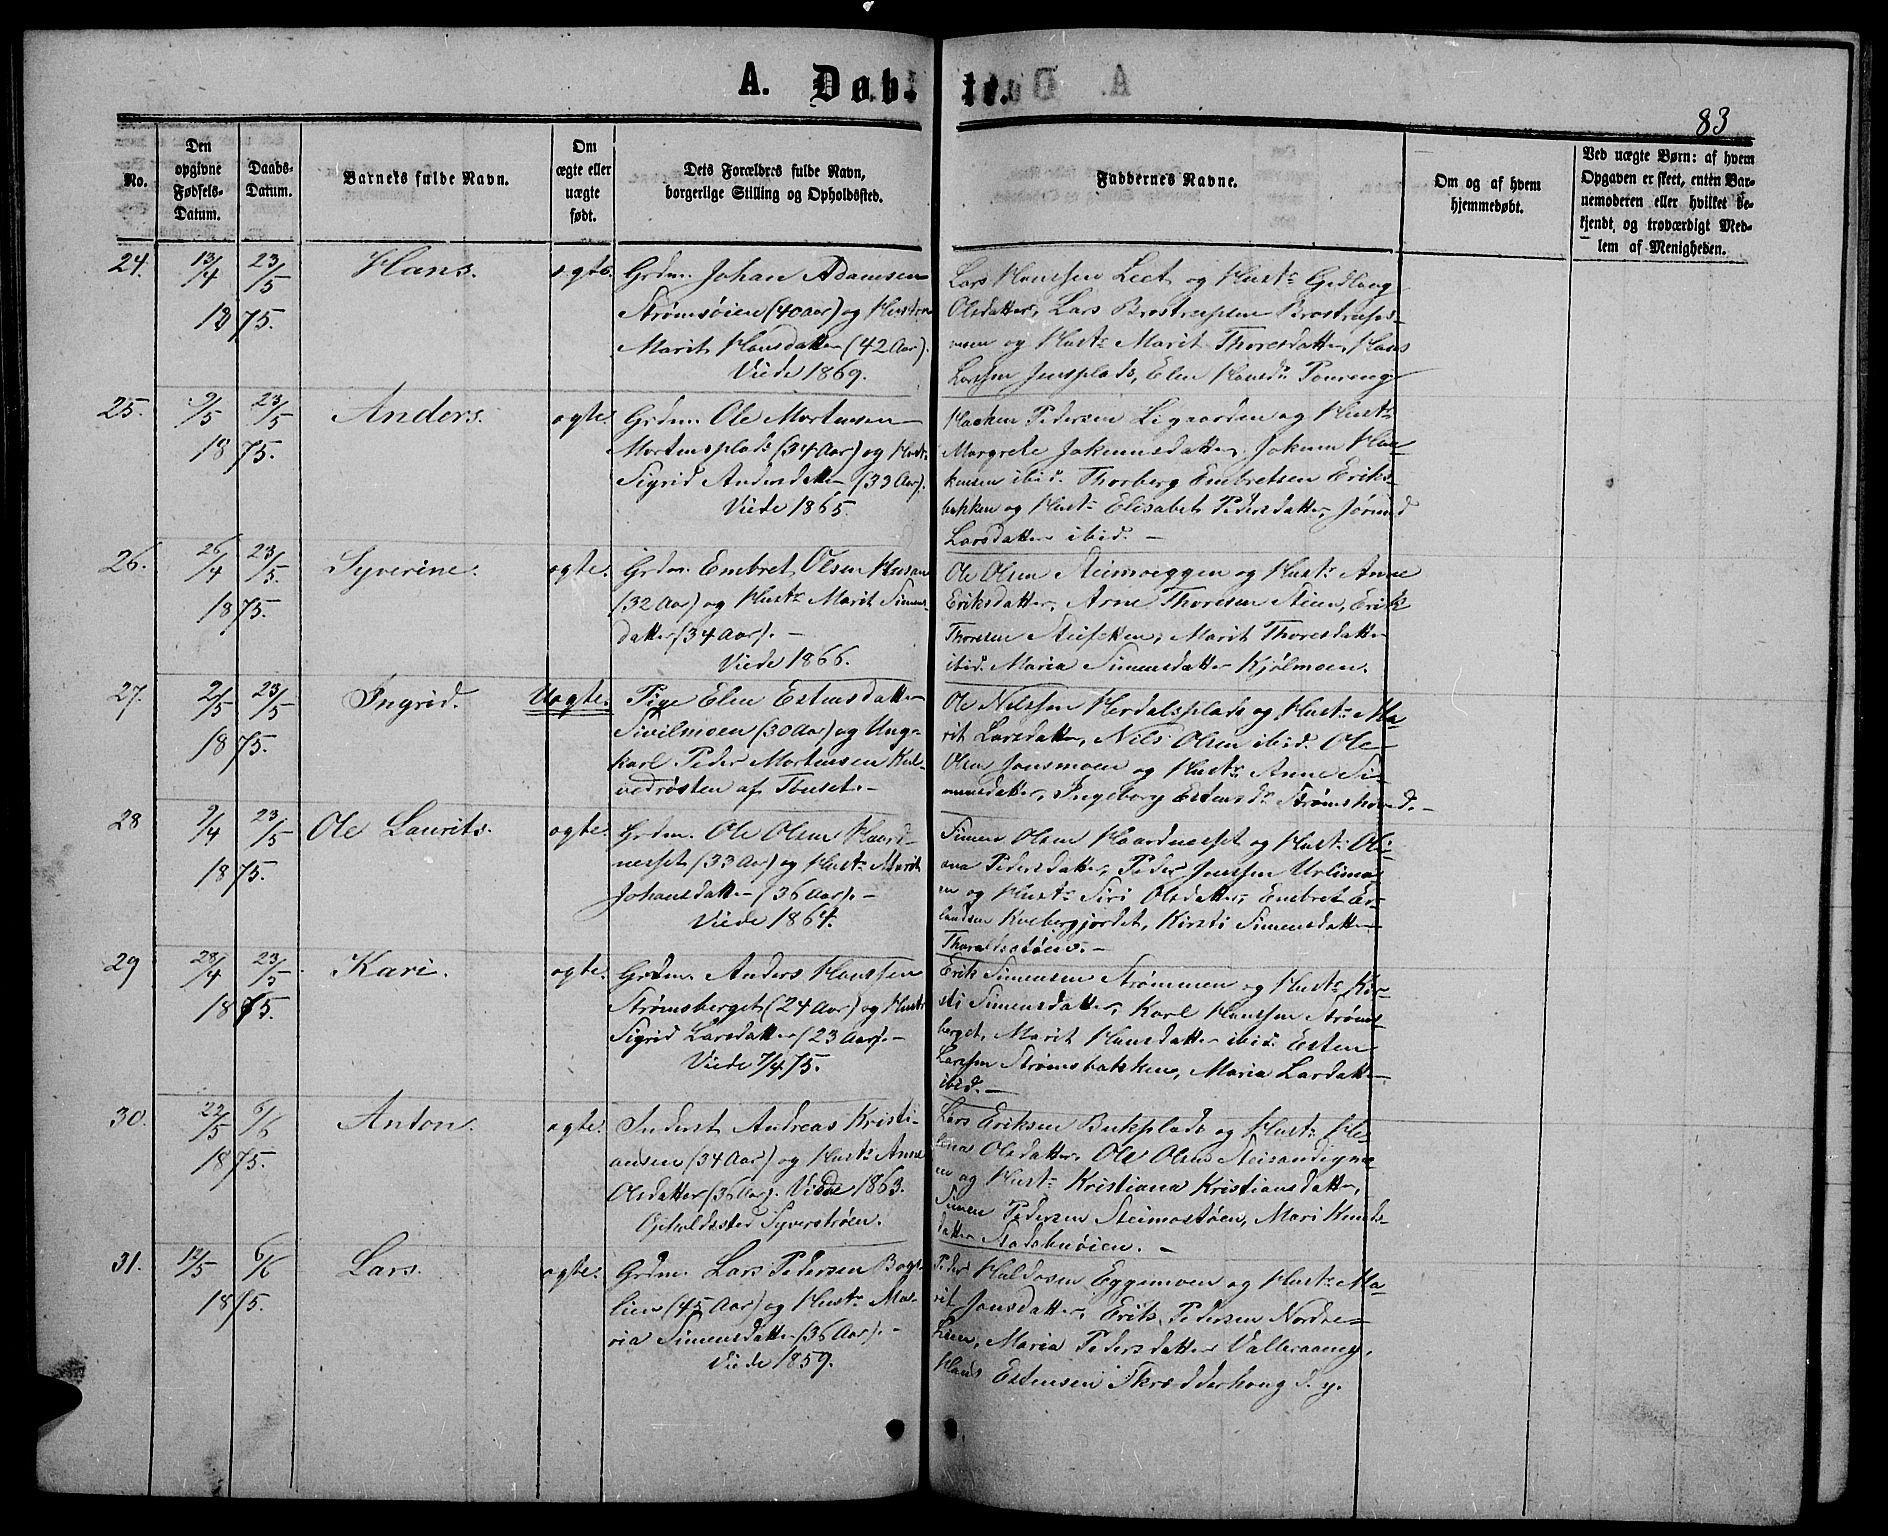 A. Døb- te.
83
No.
Den opgivne Fødsels-Datum.
Daabs-Datum.
Barnets fulde Navn.
Om ægte eller uægte født.
Dets Forældres fulde Navn, borgerlige Stilling og Opholdssted.
Faddernes Navne.
Om og af hvem hjemmedøbt.
Ved uægte Børn: af hvem Opgaven er skeet, enten Barnemoderen eller hvilket bekjendt og troværdigt Medlem af Menigheden.
24. 13/4 23/5 1875. Hans. ægte.
Grdm. Johan Adamsen
Strømsøien (40 Aar) og Hustru
Marit Hansdatter (42 Aar).
Viede 1869.
Lars Hanssen Leet og Hustr
Olsdatter, Lars
og Hustr Marit Thoresdatter, Hans
Larssen Jensplads, Elen Hansdr
25. 9/5 23/5 1875. Anders. ægte.
Grdm. Ole Mortensen
Mortensplads (34 Aar) og Hustr
Sigrid Andersdatter (33 Aar).
Viede 1865.
Haaken Pedersen Ligaarden og Hustr
Margrete Jokumsdatter, Jokum Haa-
kensen ibid. Thorberg Embretsen Eriks-
bakken og Hustr Elisabet Pedersdatter, Jørund
Larsdatter ibid. —
26. 26/4 23/5 1875. Syverine. ægte.
Grdm. Embret Olsen Husan
(32 Aar) og Hustr Marit Simens-
datter (34 Aar). —
Viede 1866.
Ole Olsen Steimoeggen og Hustr Anne
Eriksdatter, Arne Thoresen Steien, Erik
Thoresen Marit Thoresdatter
ibid. Maria Simensdatter Kjølmoen.
27. 2/5 23/5 1875. Ingrid. Uægte.
Pige Elen Estensdatter
Sivilmoen (30 Aar) og Ung-
karl Peder Mortensen Kul-
vedrøsten af Tønset. —
Ole Nilssen Herdalsplads og Hustr Ma-
rit Larsdatter, Nils Olsen ibid. Ole
Olsen Jonsmoen og Hustr Anne Si-
mensdatter, Ingeborg Estensdr Strømshoved. —
28 9/4 23/5 1875. Ole Laurits. ægte.
Grdm. Ole Olsen Haard-
nesset (33 Aar) og Hustr Marit
Johansdatter (36 Aar). —
Viede 1864.
Simen Olsen Haardnesset og Hustr Oli-
ana Pedersdatter, Peder Jonssen Urlimo-
en og Hustr Siri Olsdatter, Embret Er-
landsen Kvebergjordet, Kirsti Simensdatter
29 28/4 23/5 1875. Kari. ægte.
Grdm. Anders Hanssen
Strømsberget (24 Aar) og Hustr
Sigrid Larsdatter (23 Aar). —
Viede 7/4 75.
Erik Simensen Strømmen og Hustr Kir-
sti Simensdatter, Karl Hanssen Strøms-
berget, Marit Hansdatter ibid. Esten
Larssen Strømsbakken, Maria Larsdatter
ibid. —
30. 22/5 6/6 1875. Anton. ægte.
Inderst Andreas Kristi-
ansen (34 Aar) og Hustr Anne
Olsdatter (36 Aar). Viede 1863.
Opholdssted Syverstrøen.
Lars Eriksen Bekplads og Hustr He-
lena Olsdatter, Ole Olsen
og Hustr Kristiana Kristiansdatter,
Simen Pedersen Steimostøen, Mari Knuds-
datter —
31. 12/5 6/6 1875. Lars. ægte.
Grdm. Lars Pedersen Bag-
lien (45 Aar) og Hustr Ma-
ria Simensdatter (36 Aar). —
Viede 1859.
Peder Haldosen Eggemoen og Hustr Ma-
rit Jonsdatter, Erik Pedersen Nordre-
Lien, Maria Pedersdatter
Hans Estensen Skrædderhaug d. y.